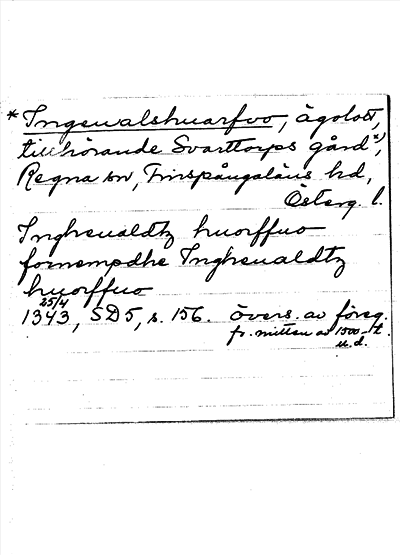 * Ingewalshuarfwo, ägolott,
tillhörande Svarttorps gård *),
Regna sn, Finspångaläns hd,
Österg. l.
Ingheualdtz huorffuo
fornempdhe Ingheualdtz
huorffuo
25/4
1343, SD5, s. 156. övers. av föreg.
fr. mitten av 1500-t.
u.d.